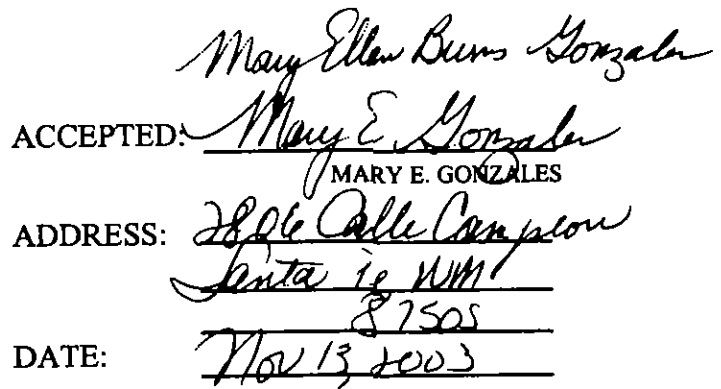 Mary Ellen Burns Gonzales
ACCEPTED: Mary E. Gonzales
MARY E. GONZALES
ADDRESS: 2806 Calle Campeon
Santa Fe NM
87505
DATE: Nov 13, 2003